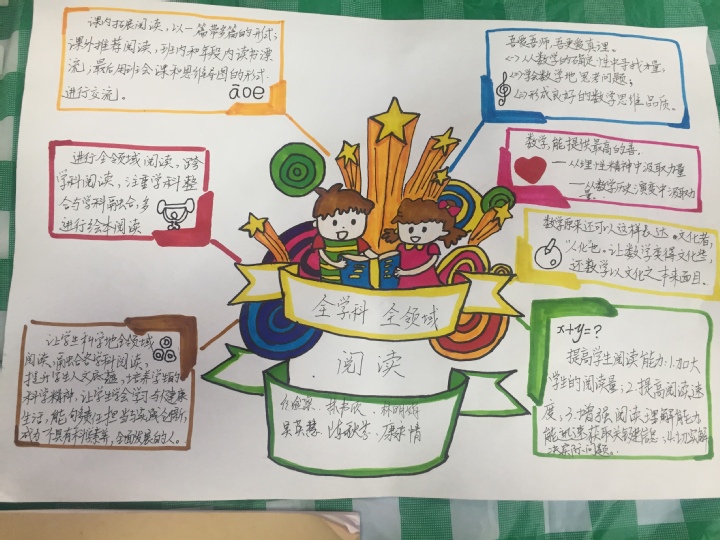 课内拓展阅读,以一篇带多篇的形式;
课外推荐阅读,班内和年段内读书漂
流,最后用班会课和思维导图的形式
进行交流。
āoe
进行全领域阅读,跨
学科阅读,注重学科整
合与学科融合,多
进行绘本阅读
让学生科学地全领域
阅读,融合各学科阅读,
提升学生人文底蕴,培养学生的
科学精神,让学生学会学习与健康
生活,能勇于担当与实践创新,
成为一个具有科学素养,全面发展的人。
全学科 全领域
阅读
吾爱吾师,吾更爱真理。
(1)从数学的确定性中寻找力量,
(2)学会数学地思考问题;
(3)形成良好的数学思维品质。
数学,能提供最高的善.
——从理性精神中汲取力量
——从数学历史演变中汲取力
量.
数学原来还可以这样表达。文化者,
以化也。让数学变得文化些,
还数学以文化之本来面目.
x+y=?
提高学生阅读能力:1.加大
学生的阅读量;2.提高阅读速
度、3.增强阅读理解能力
能迅速获取关键信息;4.切实解
决实际问题。